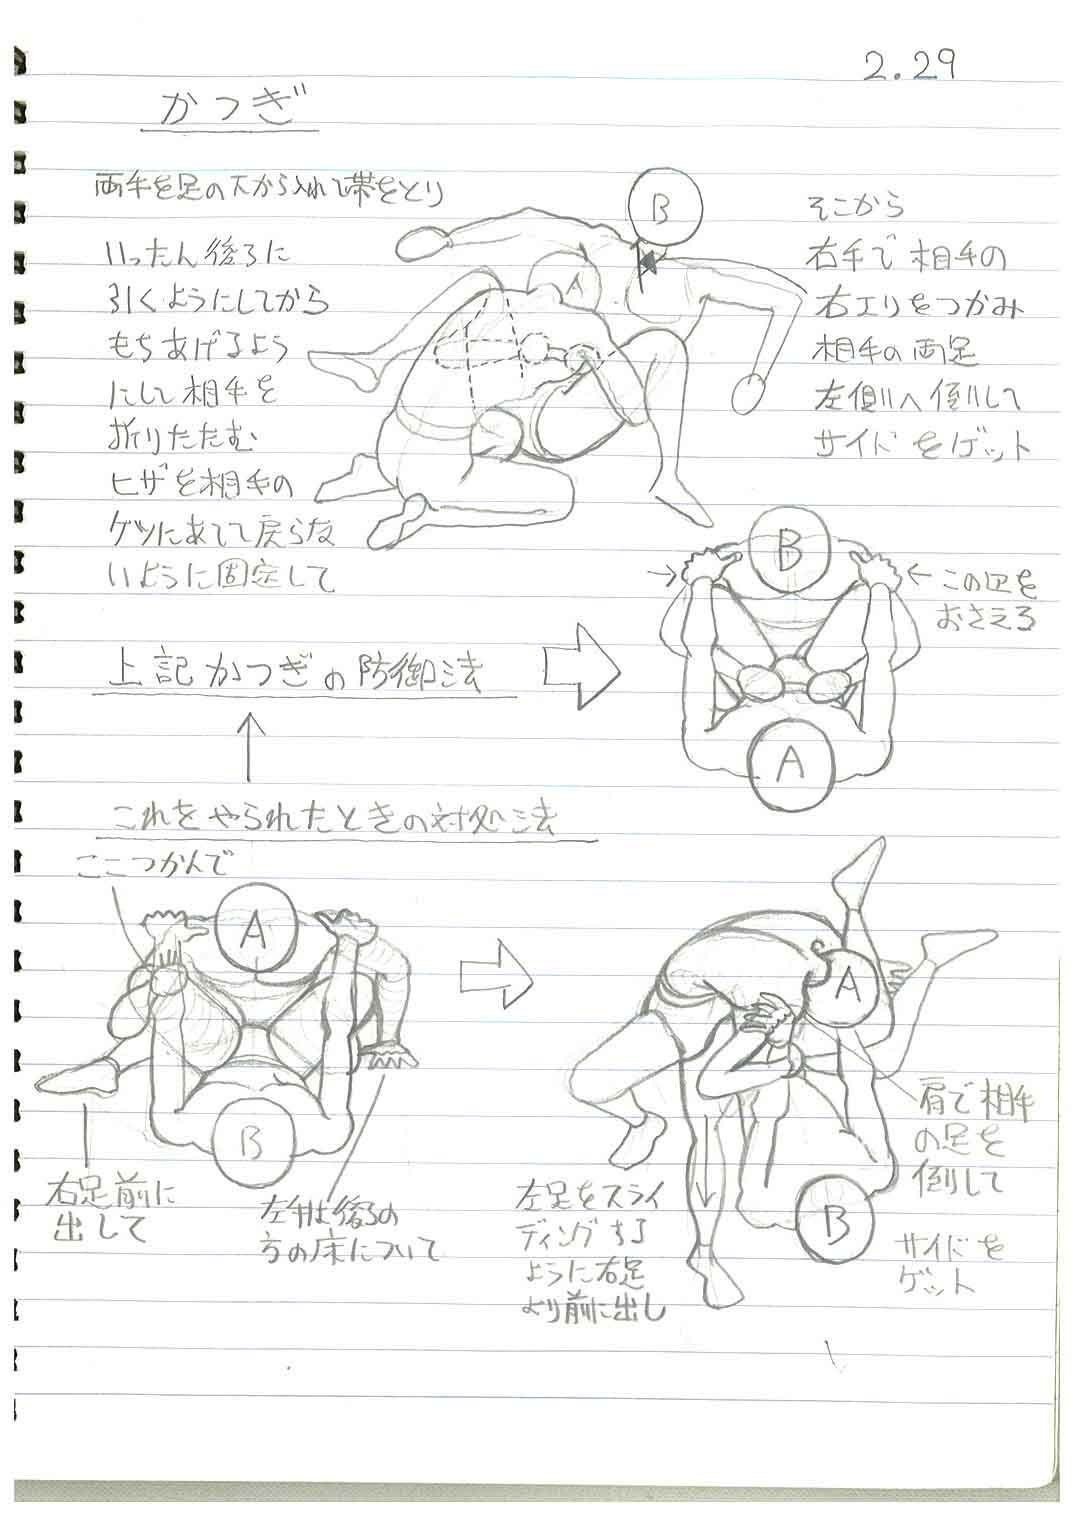 2.29
かつぎ
両手を足の下から入れて帯をとり
いったん後ろに
引くようにしてから
もちあげるよう
にして相手を
折りたたむ
ヒザを相手の
ケツにあてて戻らな
いように固定して
B
A
そこから
右手で相手の
右エリをつかみ
相手の両足
左側へ倒して
サイドをゲット
B
A
この辺を
おさえろ
上記かつぎの防御法
これをやられたときの対処法
ここつかんで
A
B
右足前に
出して
左手は後ろの
方の床について
A
B
左足をスライ
ディングする
ように右足
より前に出し
肩で相手
の足を
倒して
サイドを
ゲット